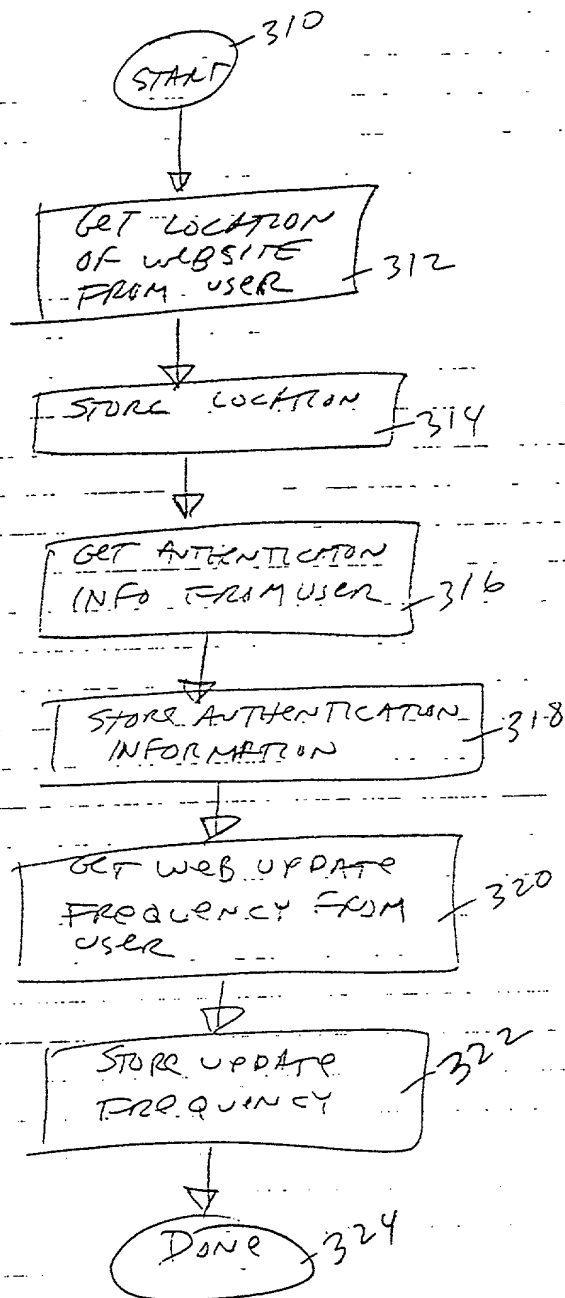 START
310
GET LOCATION
OF WEBSITE
FROM USER
312
STORE LOCATION
314
GET AUTHENTICATON
INFO FROM USER
316
STORE AUTHENTICATION
INFORMATION
318
GET WEB UPDATE
FREQUENCY FROM
USER
320
STORE UPDATE
FREQUENCY
322
DONE
324